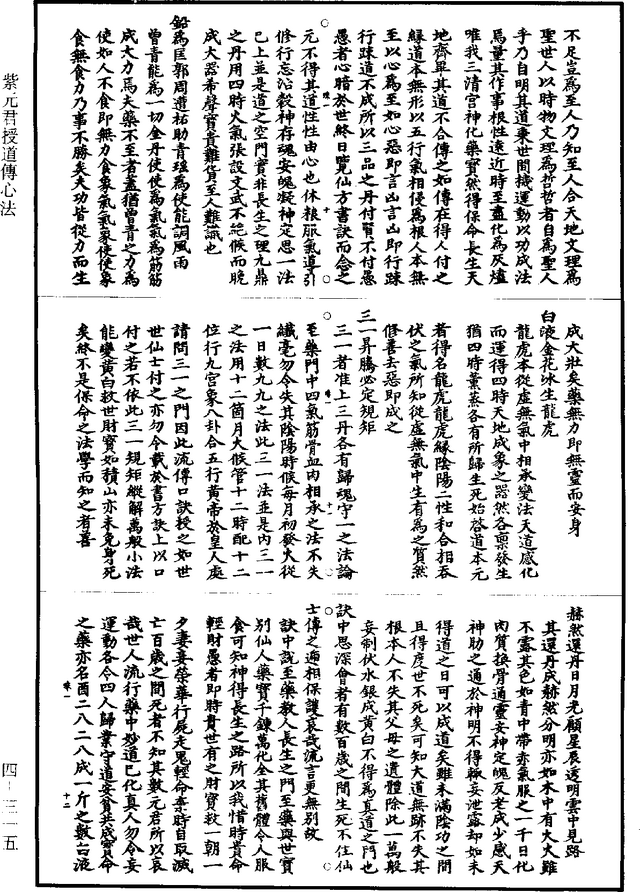 不足豈為至人乃知至人合天地文理為
聖世人以時物文理為哲哲者自為聖人
乎乃自明其道秉世間機運動以功成法
為量其作事根性遠近時至盡化為灰爐
唯我三清宮神化藥寶然得保命長生天
地齊畢其道不合傳之如傳在得人付之
緣道本無形以五行氣相侵為根人本無
至以心為至如心惡即言凶言凶即行踈
行踈道不成所以三品之丹付賢不付愚
愚者心暗於世終日覽仙方書訣而念之
元不得其道性性由心也休粮服氣導引
修行忘洽穀神存魂安魄凝神定思一法
已上並是道之空門實非長生之理九鼎
之丹用四時火氣張設文武不絕候而晚
成大器希聲寶貴難貨至人難識也
鉛為匡郭周遭祐助青瑤為使能調風雨
曾青能為一切金丹使使為氣氣為筋筋
成大力焉夫藥不至者蓋猶曾青之力為
使如人不食即無力食象氣氣象使使象
食無食力乃事不勝矣夫功皆從力而生
成大壯矣藥無力即無靈而安身
白液金花氷生龍虎
龍虎本從虛無氣中相承變法天道感化
而運得四時天地成象之器然各禀發生
猶四時薰蒸各有所歸生死始啓道本元
者得名龍虎龍虎緣陰陽二性和合相吞
伏之氣所知從虛無氣中生有為之質然
修善去惡即成之
三一昇騰必定規矩
三一者准上三丹各有歸魂守一之法論
至藥門中四氣筋骨血肉相承之法不失
纖毫勿令失其陰陽時候每月初發火從
一日數九九之法此三一法並是內三一
之法用十二箇月火候管十二時配十二
位行九宮象八卦合五行黃帝於皇人處
請問三一之門因此流傳口訣授之如世
世仙士付之亦勿令載於書方訣上以口
付之若不依此三一規矩縱解萬般小法
能變黃白救世財寶如積山亦未免身死
矣終不是保命之法學而知之者喜
赫然還丹日月光顧星辰透明雲中見路
其還丹成赫然分明亦如木中有大火雖
不露其色如青中帶赤氣服之一千日化
肉質換骨通靈安神定魄反老成少感天
神助之通於神明不得輒妄泄露却如未
得道之日可以成道矣雖未滿陰功之間
且得度世不死矣可知大道無跡不失其
根本人不失其父母之遺體除此一萬般
妄制伏水銀成黃白不得為真道之門也
訣中思深會者有數百歲之間生死不住仙
士傳之遞相保護哀哉流言更無別故
訣中說至藥教人長生之門至藥與世寶
別仙人藥寶千鍊萬化全其舊體令人服
食可知神得長生之路所以我惜時貴命
輕財愚者即時貴世有之財寶救一朝一
夕妻妾榮華行屍走鬼輕命棄時自取滅
亡百歲之間死者不知其數元君所以哀
哉世人流行藥中妙道已化真人勿令妄
運動各令四人歸業守道安貧共成寶命
之藥亦名酉二八二八成一斤之數白液
紫元君授道傳心法
四-三一五